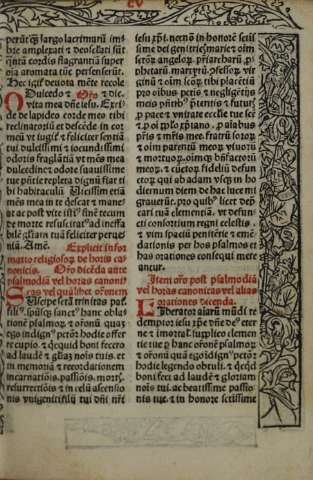 CV
perūt cū largo lacrimarū imbre
amplexati ⁊ deosclati sūt
quāta cordis flagrantia super
oīa aromata tūc persenserūt.
Hec igit̄ deuota mēte recole
Dulcedo ⁊ Oro. ⁊ dic.
vita mea dn̄e iesu. Exuꝛ
de lapideo corde meo tibi
reclinatoriū et descēde in coꝛ
meū vt iugit̄ ⁊ feliciter sentiā
tui dulcissimi ⁊ iocundissimi
odoris fraglātiā vt mēs mea
dulcedine ⁊ odore suauissime
tue pūtie repleta digna fiat ti
bi habitaculū. Uicissim etiā
mēs mea in te descāt ⁊ mane
at ac post vite istiꝰ fine tecum
de morte resuscitatꝰ ad ineffa
bile gl̄iam tuā feliciter perue
nia. Amē. Explicit infor
matio religiosoꝝ de horis ca
nonicis. Oro dicēda ante
psalmodiā vel horas canoni
cas vel quālibet oronem
Suscipe sctā trinitas pat̄
fili ⁊ spūscē sanctꝰ hanc obla
tionē psalmoꝝ ⁊ orōnū quas
ego indignꝰ pctōr hodie offer
re cupio. ⁊ qcqd boni fecero
ad laudē ⁊ gl̄iaz nois tuis. et
in memoriā ⁊ recordationem
incarnatiōis. passiōis. mortꝭ
resurrectiōis ⁊ in celū ascensio
nis vnigeniti filij tui dn̄i nr̄i
iesu xp̄i. necnō in honorē scissi
me dei genitricꝭ marie ⁊ oim
scōꝝ angeloꝝ. pr̄iarcharū. ꝓ
phetarū. martyrū. ꝯfessoꝝ. vir
ginū ⁊ oim scōꝝ. tibi placēti
pro oibus pctis ⁊ negligētijs
meis pn̄tibꝰ pteritis ⁊ futurꝭ
ꝓ pace ⁊ vnitate ecclie tue scē
⁊ ꝓ oi pplo xp̄iano. ꝓ aiabus
pris ⁊ mris mee. fratrū soroꝝ
⁊ oim parentū meoꝝ viuorū
⁊ mortuoꝝ. oimqꝫ bn̄factorū
meoꝝ. ⁊ cunctoꝝ fideliū defun
ctoꝝ qui ab adam vsqꝫ in ho
diernum diem de hac luce mi
grauerūt. pro quibꝰ licet dep̄
cari tuā clementiā. vt defun
cti consortium regni celestis.
⁊ viui spaciū penitētie ⁊ eme
dationis per hos psalmos et
has orationes consequi mere
ancur.
Item oro post psalmodiā
vel horas canonicas vel alias
orationes dicenda.
Liberator aiarū mūdi re
demptor iesu xpē dn̄e dē eter
ne ⁊ imortal. supplico clemen
tie tue ꝓ hanc orōnē psalmoꝝ
⁊ orōnū quā ego idignꝰ pctōr
hodie legendo obtuli. ⁊ qcqd
boni feci ad laudē ⁊ gloriam
nois tui. ac beatissime passio
nis tue ⁊ in honore sctissime